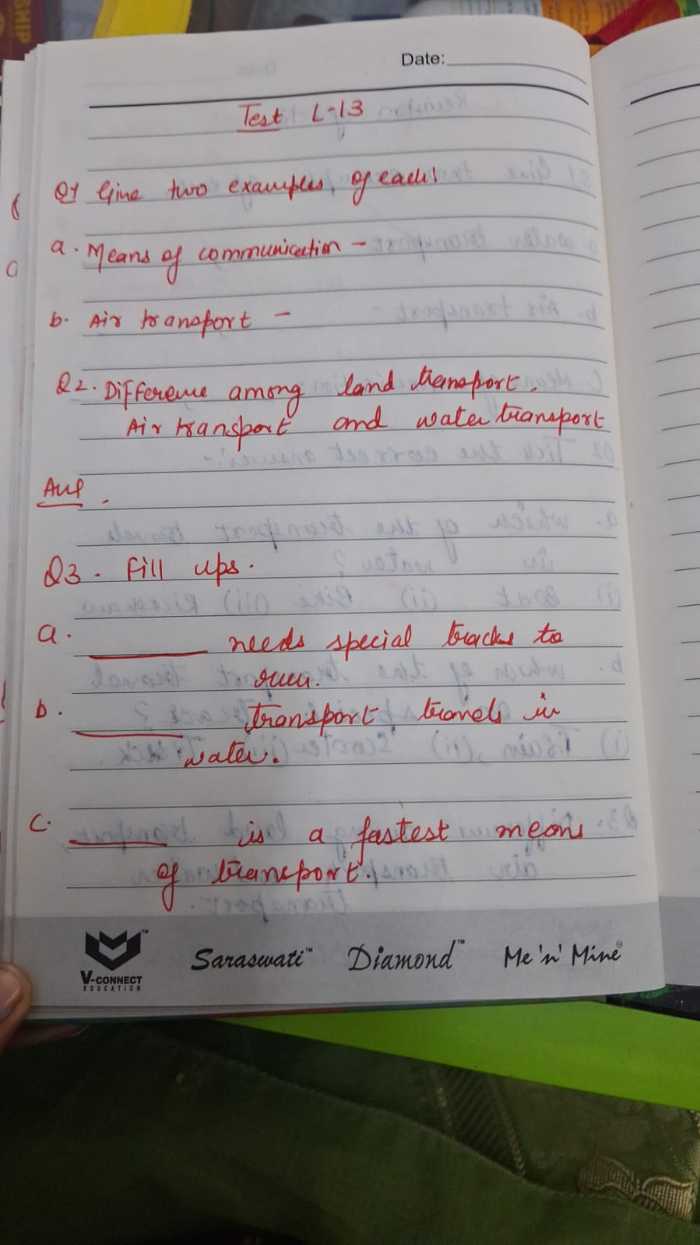 Date:
Test L-13
Q1 Give two examples of each!
a. Means of communication -
b. Air transport -
Q2. Difference among land transport.
Air transport and water transport
Ans.
Q3. Fill ups.
a. ________ needs special tracks to
run.
b. ________ transport travels in
water.
c. ________ is a fastest means
of transport.
V-CONNECT
EDUCATION
Saraswati™ Diamond™ Me 'n' Mine®